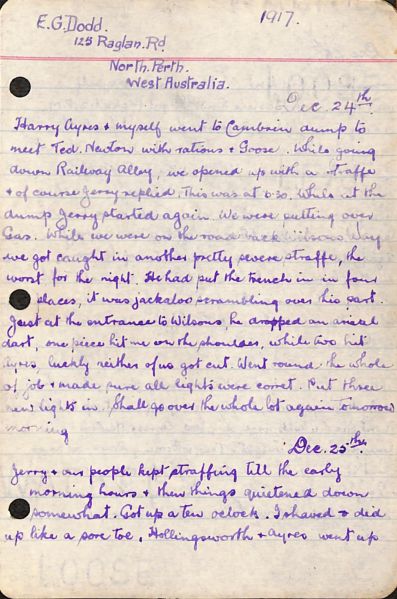 E.G. Dodd. 1917.
125 Raglan. Rd
North. Perth.
West Australia.
Dec. 24th.
Harry Ayres + myself went to Cambrein dump to
meet Ted. Newton with rations + Goose. While going
down Railway Alley, we opened up with a straffe
+ of course Jerry replied. This was at 6.30. While at the
dump Jerry started again. We were putting over
Gas. While we were on the road back Wilsons Way
we got caught in another pretty severe straffe, the
worst for the night. He had put the trench in in four
places, it was jackaloo scrambling over this part.
Just at the entrance to Wilsons, he dropped an arieal
dart, one piece hit me on the shoulder, while two hit
Ayres, luckly neither of us got cut. Went round the whole
of job + made sure all lights were corret. Put three
new lights in. Shall go over the whole lot again tomorrow
morning
Dec. 25th.
Jerry + our people kept straffing till the early
morning hours + then things quietened down
somewhat. Got up a ten oclock. I shaved + did
up like a sore toe. Hollingsworth + Ayres went up